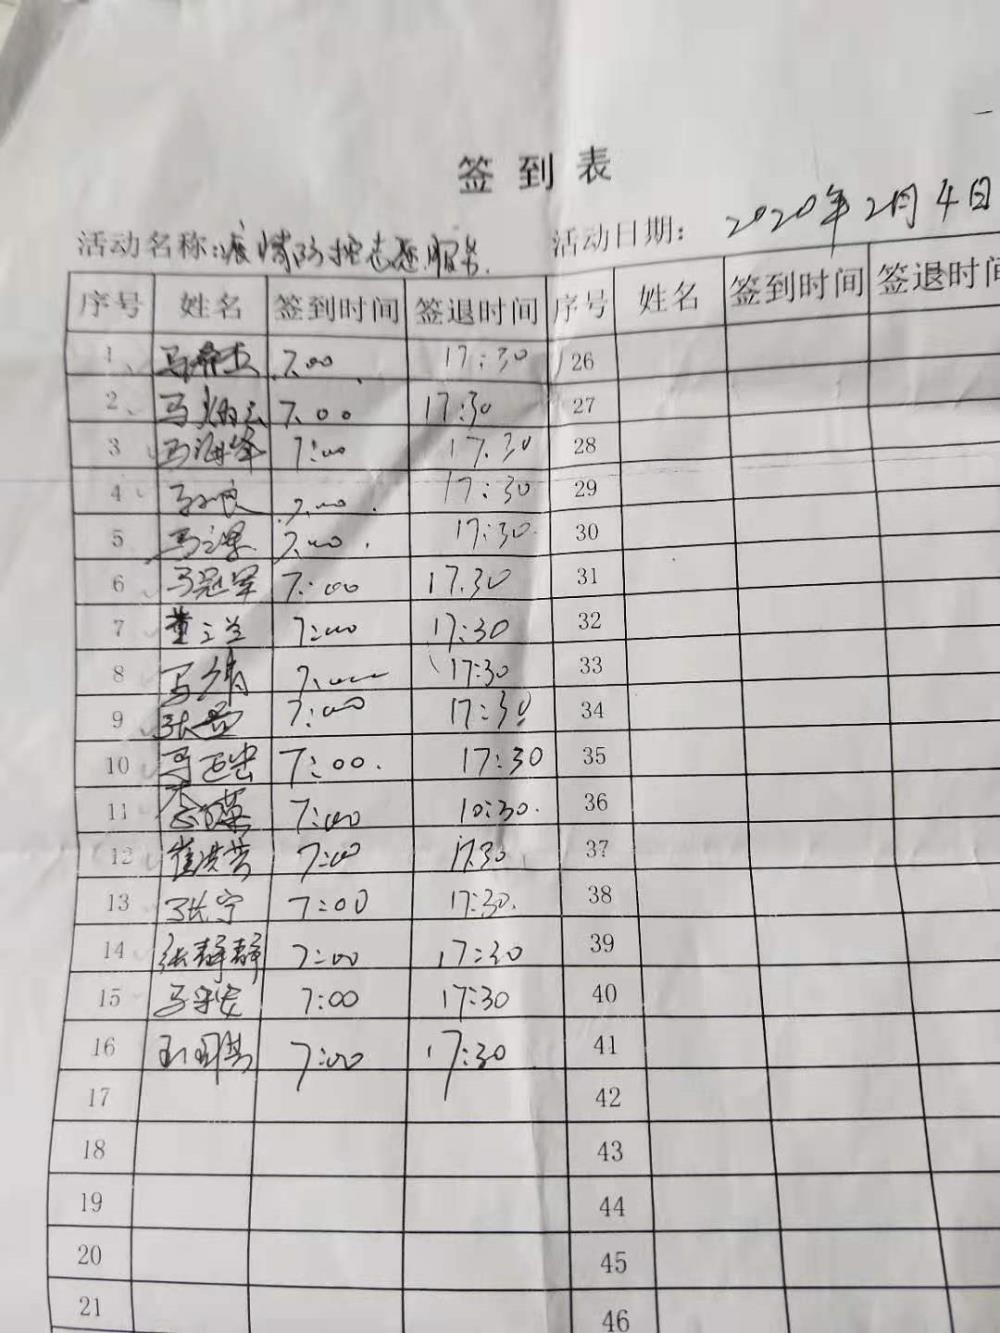 签到表
活动名称:疫情防控志愿服务 活动日期: 2020年2月4日
序号 姓名 签到时间 签退时间 序号 姓名 签到时间 签退时间
1 7:00 17:30 26
2 7:00 17:30 27
3 马海峰 7:00 17:30 28
4 7:00 17:30 29
5 7:00 17:30 30
6 马冠军 7:00 17:30 31
7 7:00 17:30 32
8 7:00 17:30 33
9 7:00 17:30 34
10 7:00 17:30 35
11 7:00 10:30 36
12 7:00 17:30 37
13 张宁 7:00 17:30 38
14 张静静 7:00 17:30 39
15 7:00 17:30 40
16 7:00 17:30 41
17 42
18 43
19 44
20 45
21 46